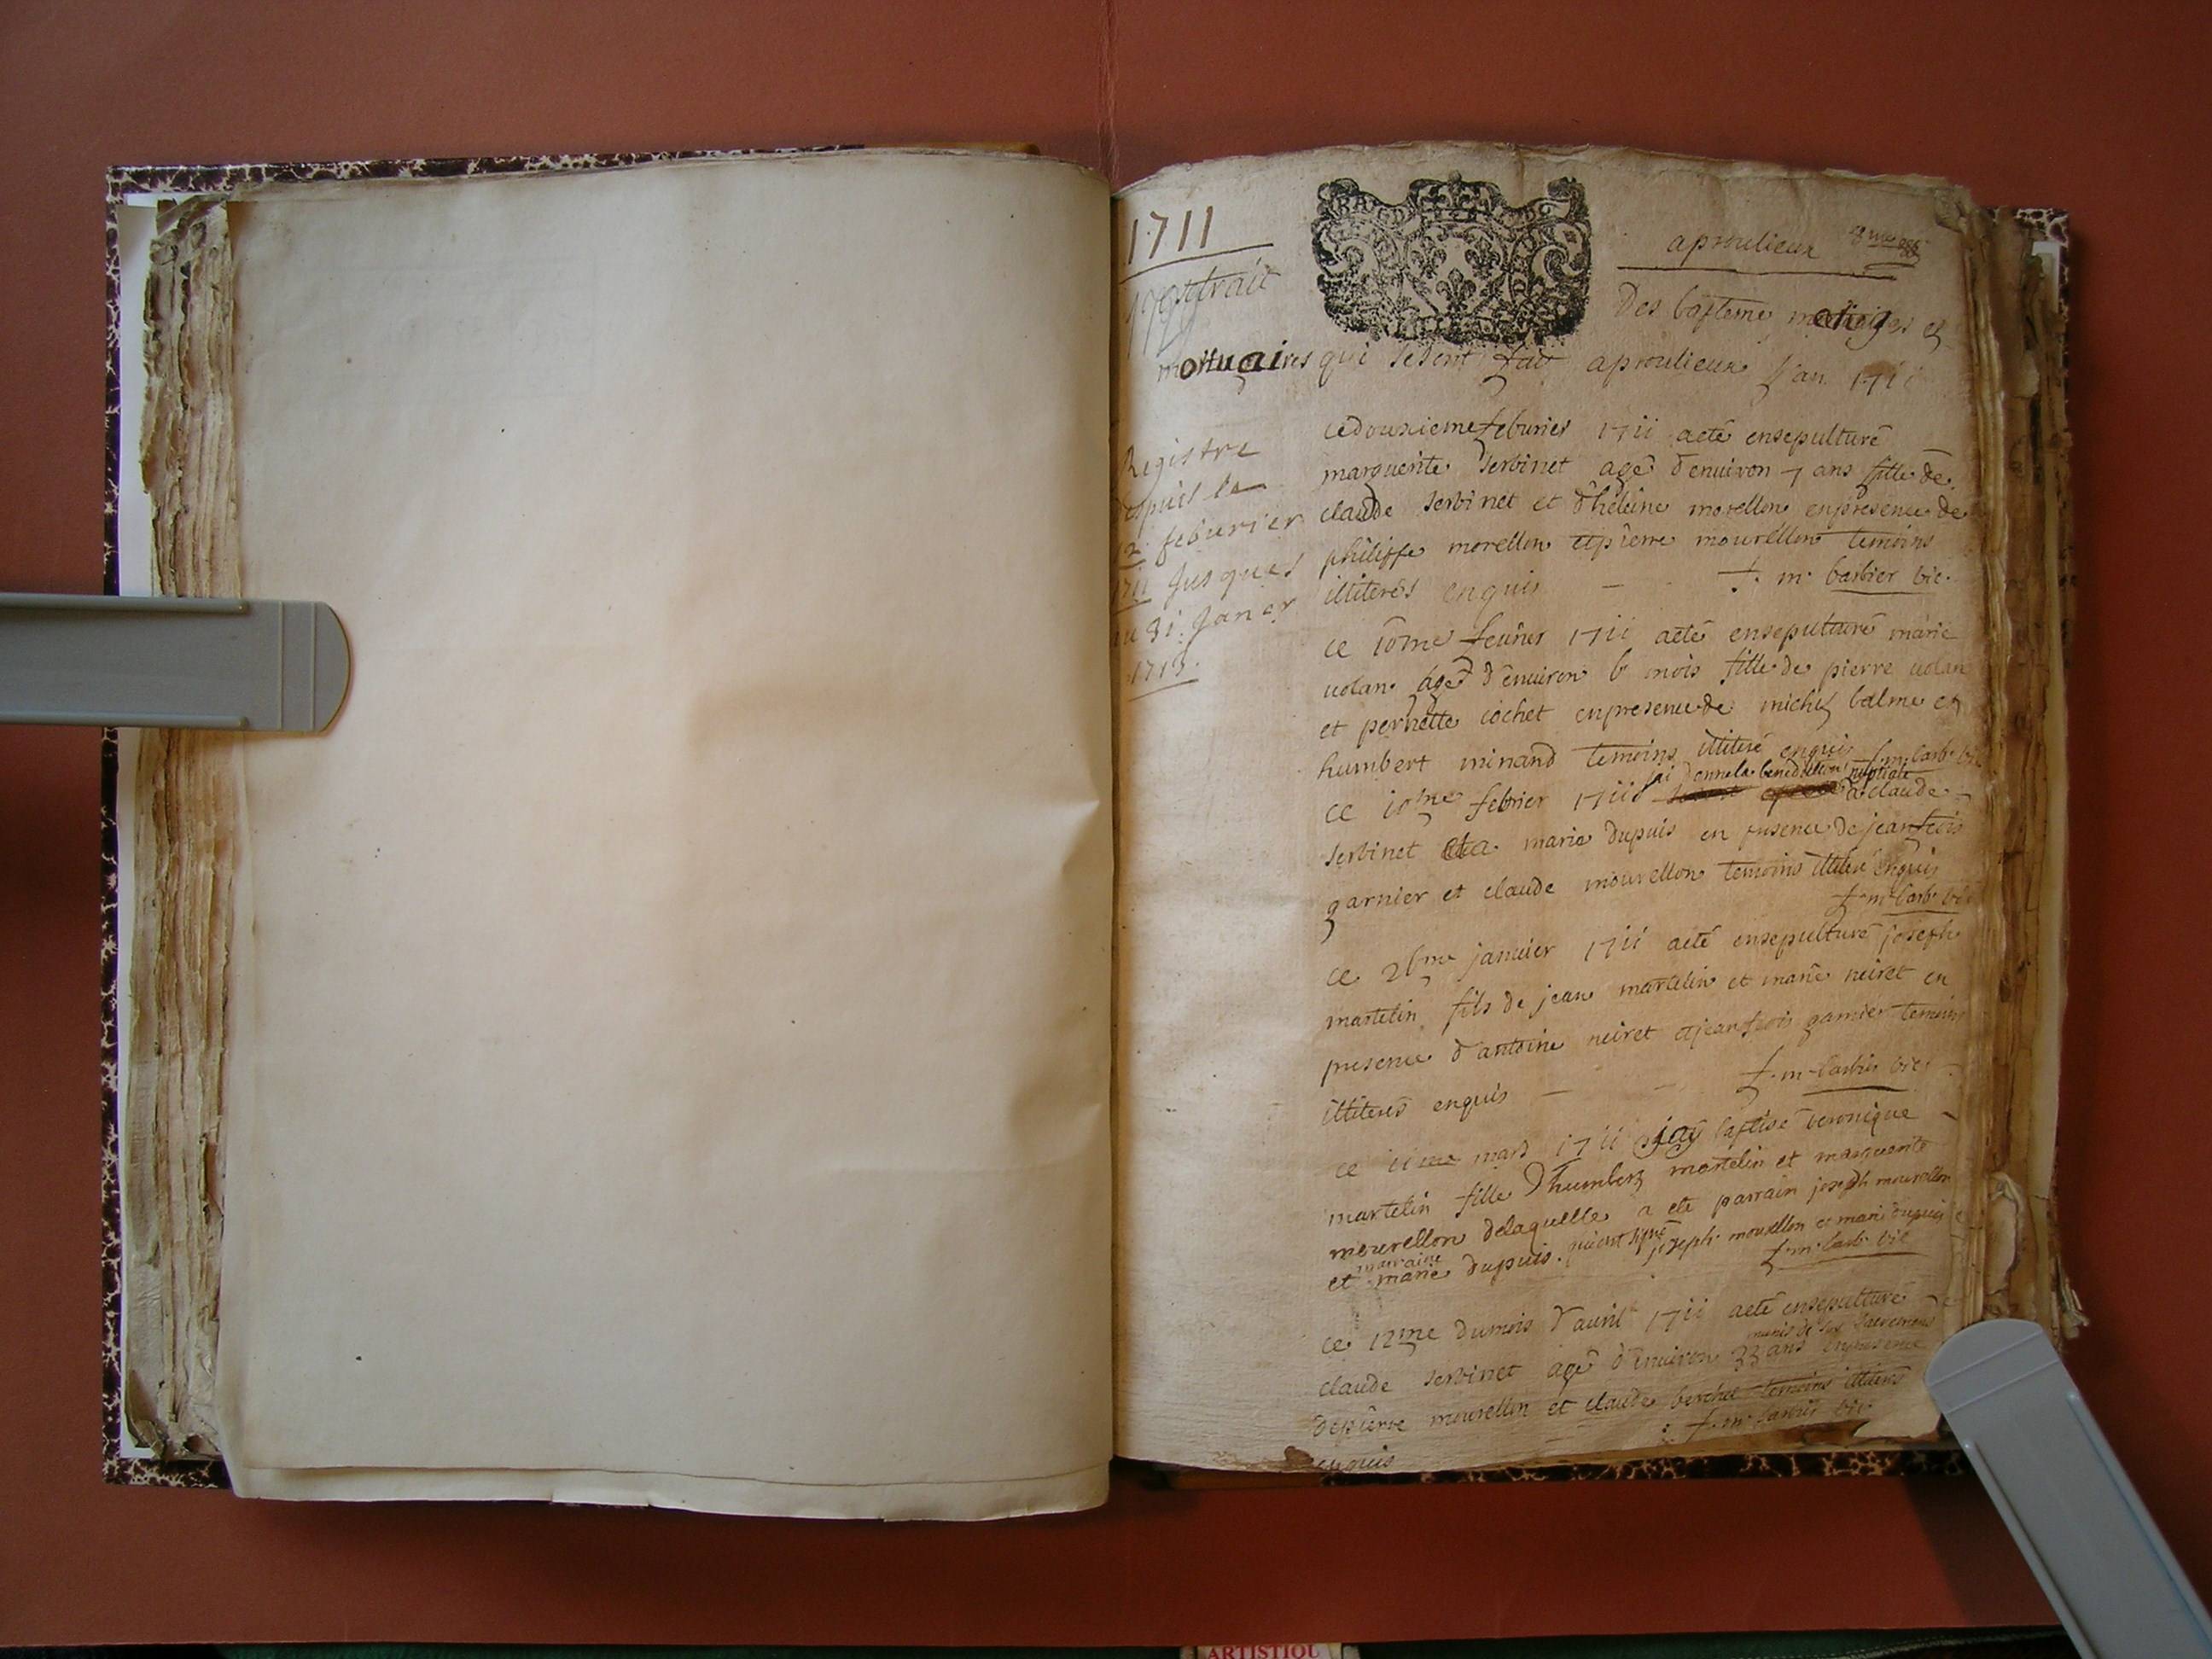 1711
aproulieux
Extrait
Des bapteme mariages et
mortuaires qui se sont fait aproulieux l'an 1711
Registre
depuis le
12 feburier
1711 Jusques
au 31 Janer
1713.
ce douxieme feburier 1711 aeté ensepulturé
marguerite serbinet agé d'enuiron 7 ans fille de
claude serbinet et d'heleine morellon enpresence de
philippe morellon et pierre mourellon temoins
illiterés enquis f. m. barbier vic.
ce 10me feurier 1711 aeté ensepulturé marie
uolan agé d'enuiron 6 mois fille de pierre uolan
et pernette cochet enpresence de michel balme et
humbert minand temoins illiteré enquis f. m. barb. vic
ce 10me febrier 1711 jai donné la benediction nuptiale a claude
serbinet et a marie dupuis en presence de jean fcois
garnier et claude mourellon temoins illiteré enquis
f. m. barb. vic
ce 26me januier 1711 aeté ensepulturé joseph
martelin fils de jean martelin et marie neiret en
presence d'antoine neiret et jean fcois garnier temoins
illiterés enquis f. m. barbier vic
ce 11me mars 1711 jay baptisé veronique
martelin fille d'humbert martelin et marguerite
mourellon delaquelle a eté parrain joseph mourellon
et marraine marie dupuis. qui ont signé joseph mourellon et marie dupuis
f. m. barb. vic
ce 12me du mois d'auril 1711 aeté ensepulturé
claude serbinet agé d'enuiron 33 ans munis de ses sacremens enpresence
de pierre mourellon et claude berchet temoins illiterés
enquis f. m. barbier vic.
ARTISTIQU